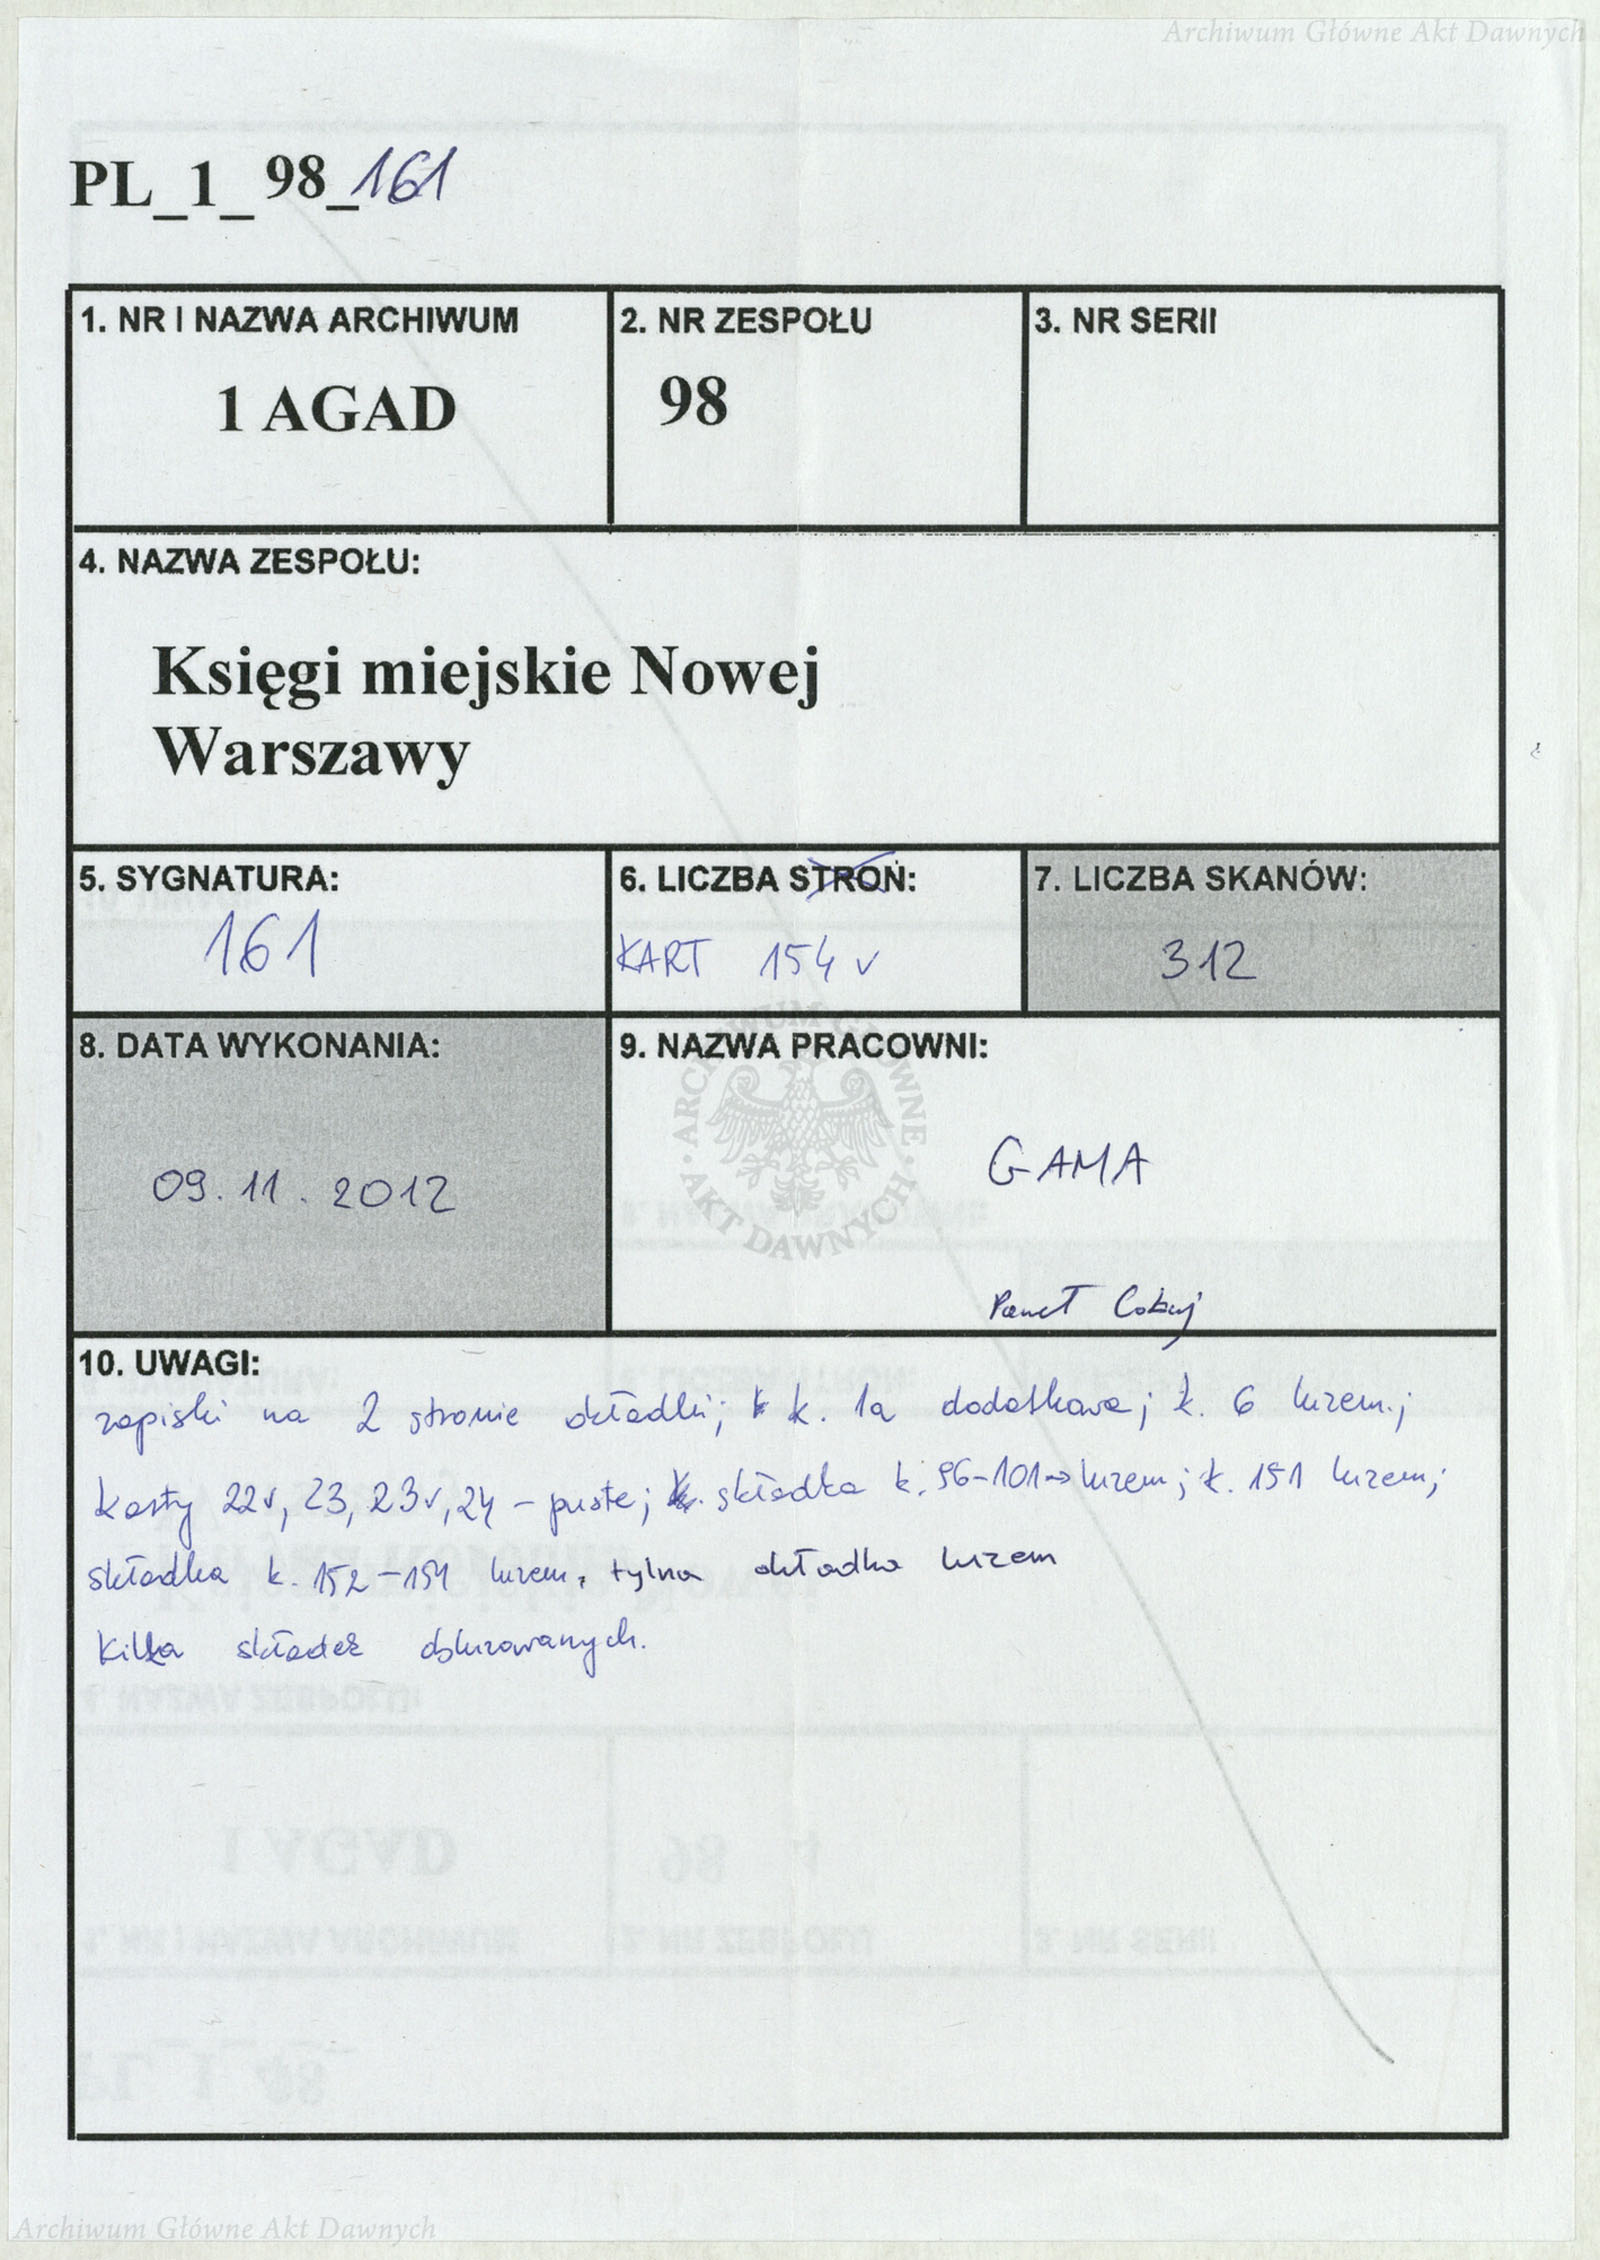 Archiwum Główne Akt Dawnych
PL_1_ 98_161
1. NR I NAZWA ARCHIWUM
1 AGAD
2. NR ZESPOŁU
98
3. NR SERII
4. NAZWA ZESPOŁU:
Księgi miejskie Nowej
Warszawy
5. SYGNATURA:
161
6. LICZBA STRON:
KART 154 v
7. LICZBA SKANÓW:
312
8. DATA WYKONANIA:
09.11.2012
9. NAZWA PRACOWNI:
GAMA
Paweł
ARCHIWUM GŁÓWNE AKT DAWNYCH
10. UWAGI:
zapiski na 2 stronie okładki; k. 1a dodatkowa; k. 6 luzem.;
karty 22v, 23, 23v, 24 – puste; składka k. 96–101→ luzem; k. 151 luzem;
składka k. 152–154 luzem, tylna okładka luzem
Kilka składek obluzowanych.
Archiwum Główne Akt Dawnych